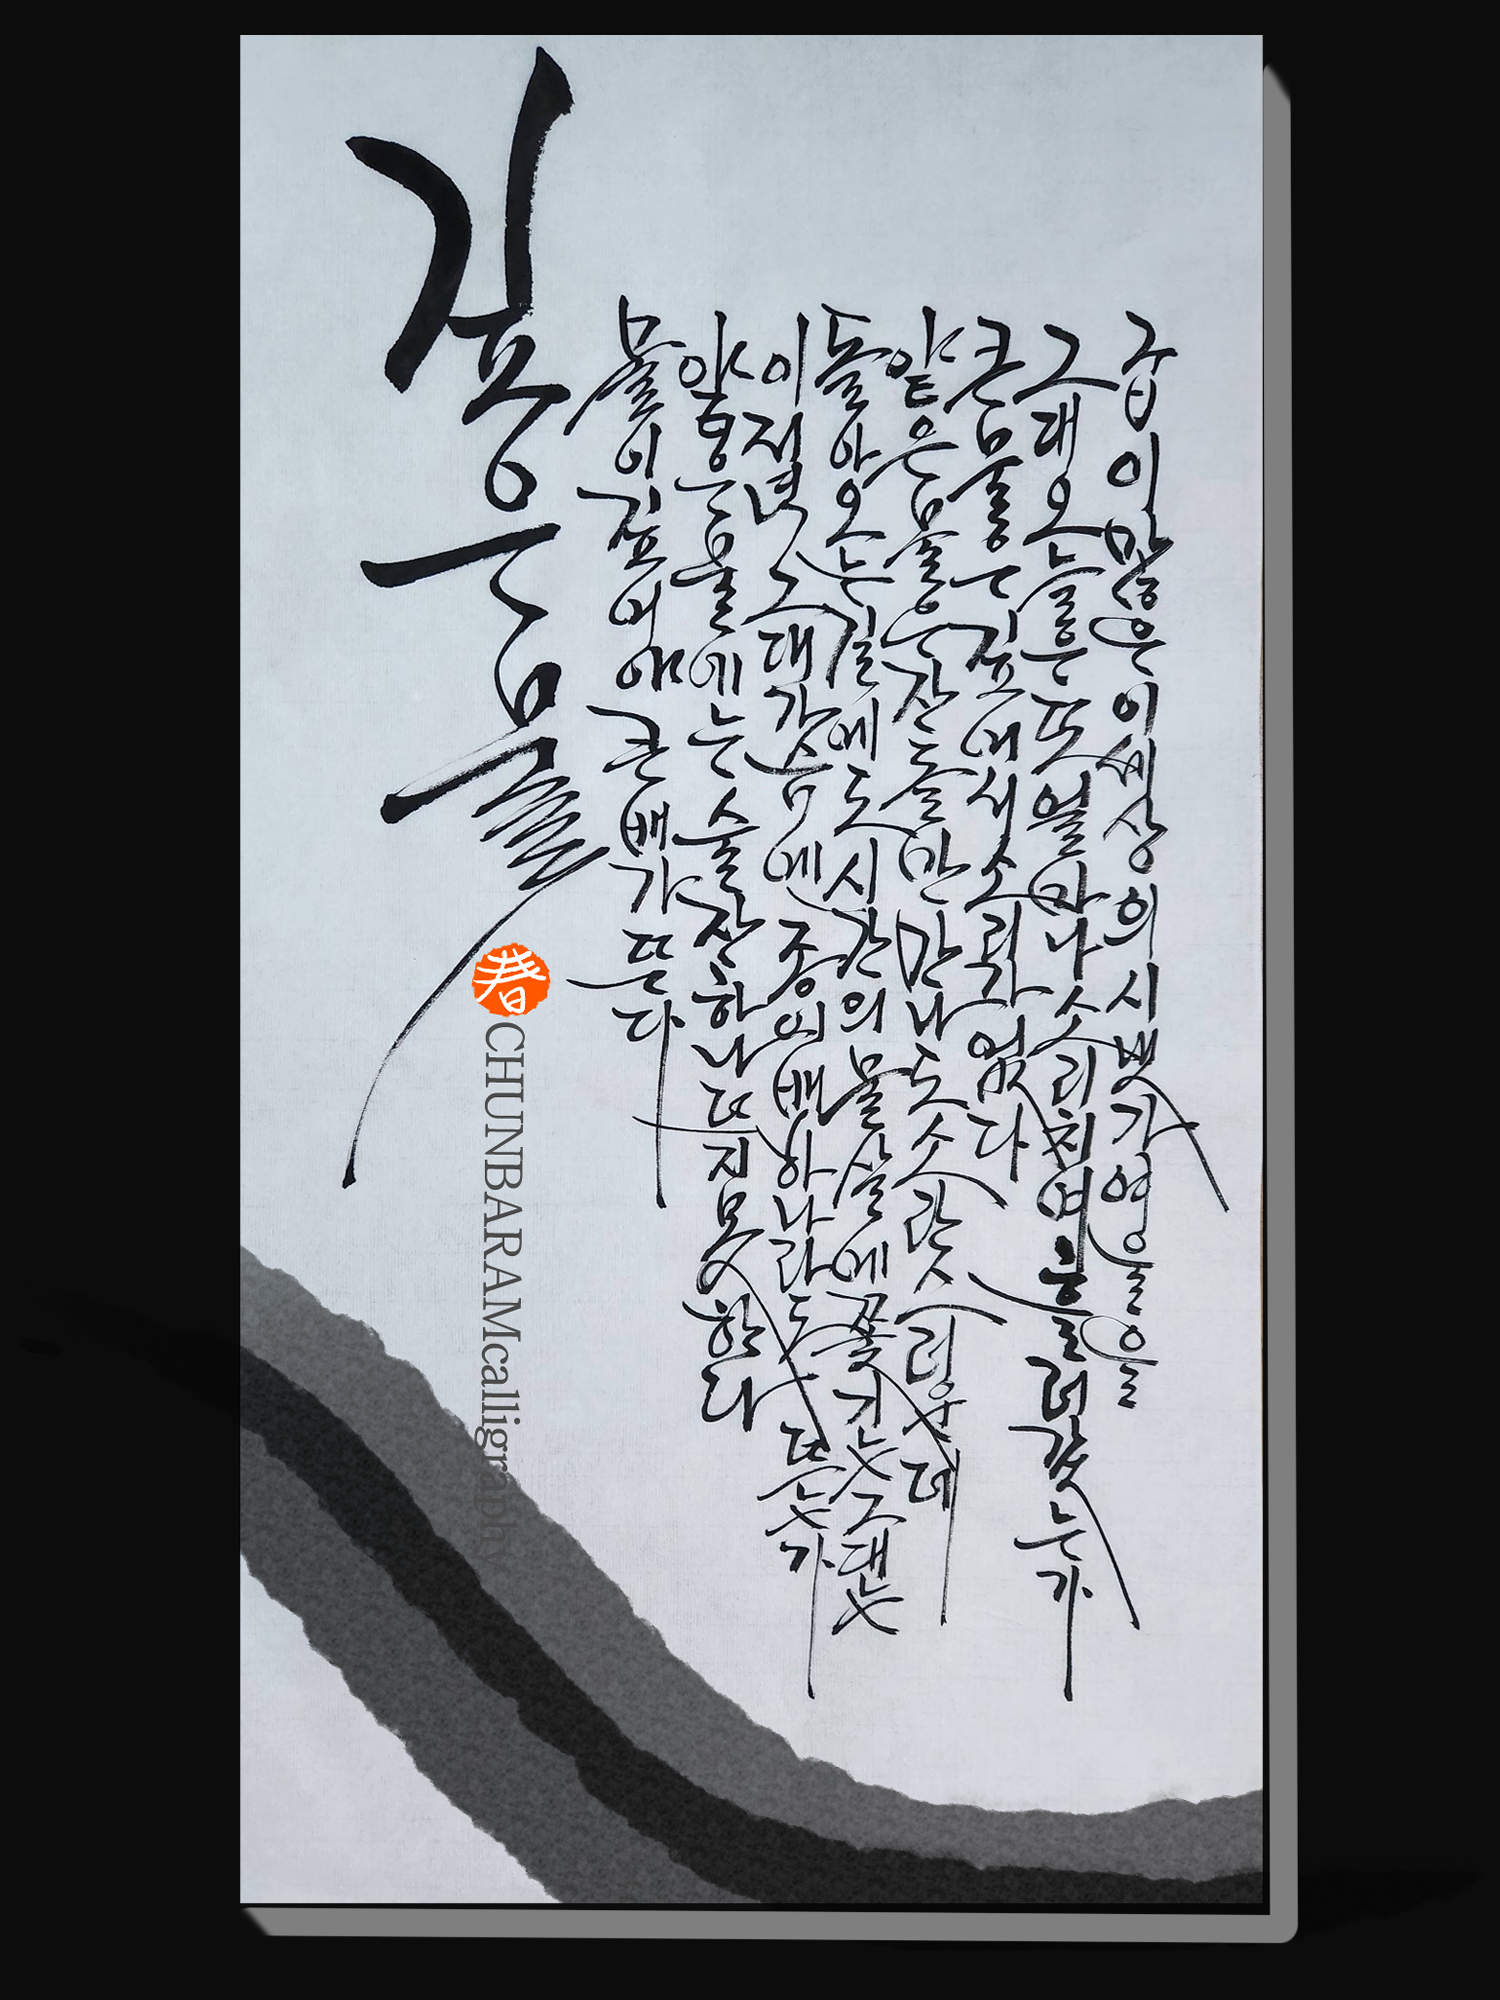 깊은 물
물이 깊어야 큰 배가 뜬다
얕은 물에는 술잔 하나 뜨지 못한다
이 저녁 그대 가슴엔 종이배 하나라도 뜨는가
돌아오는 길에도 시간의 물살에 쫓기는 그대는
얕은 물은 잔돌만 만나도 소란스러운데
큰 물은 깊어서 소리가 없다
그대 오늘은 또 얼마나 소리치며 흘러갔는가
굽이 많은 이 세상의 시냇가 여울을
春
CHUNBARAMcalligraphy